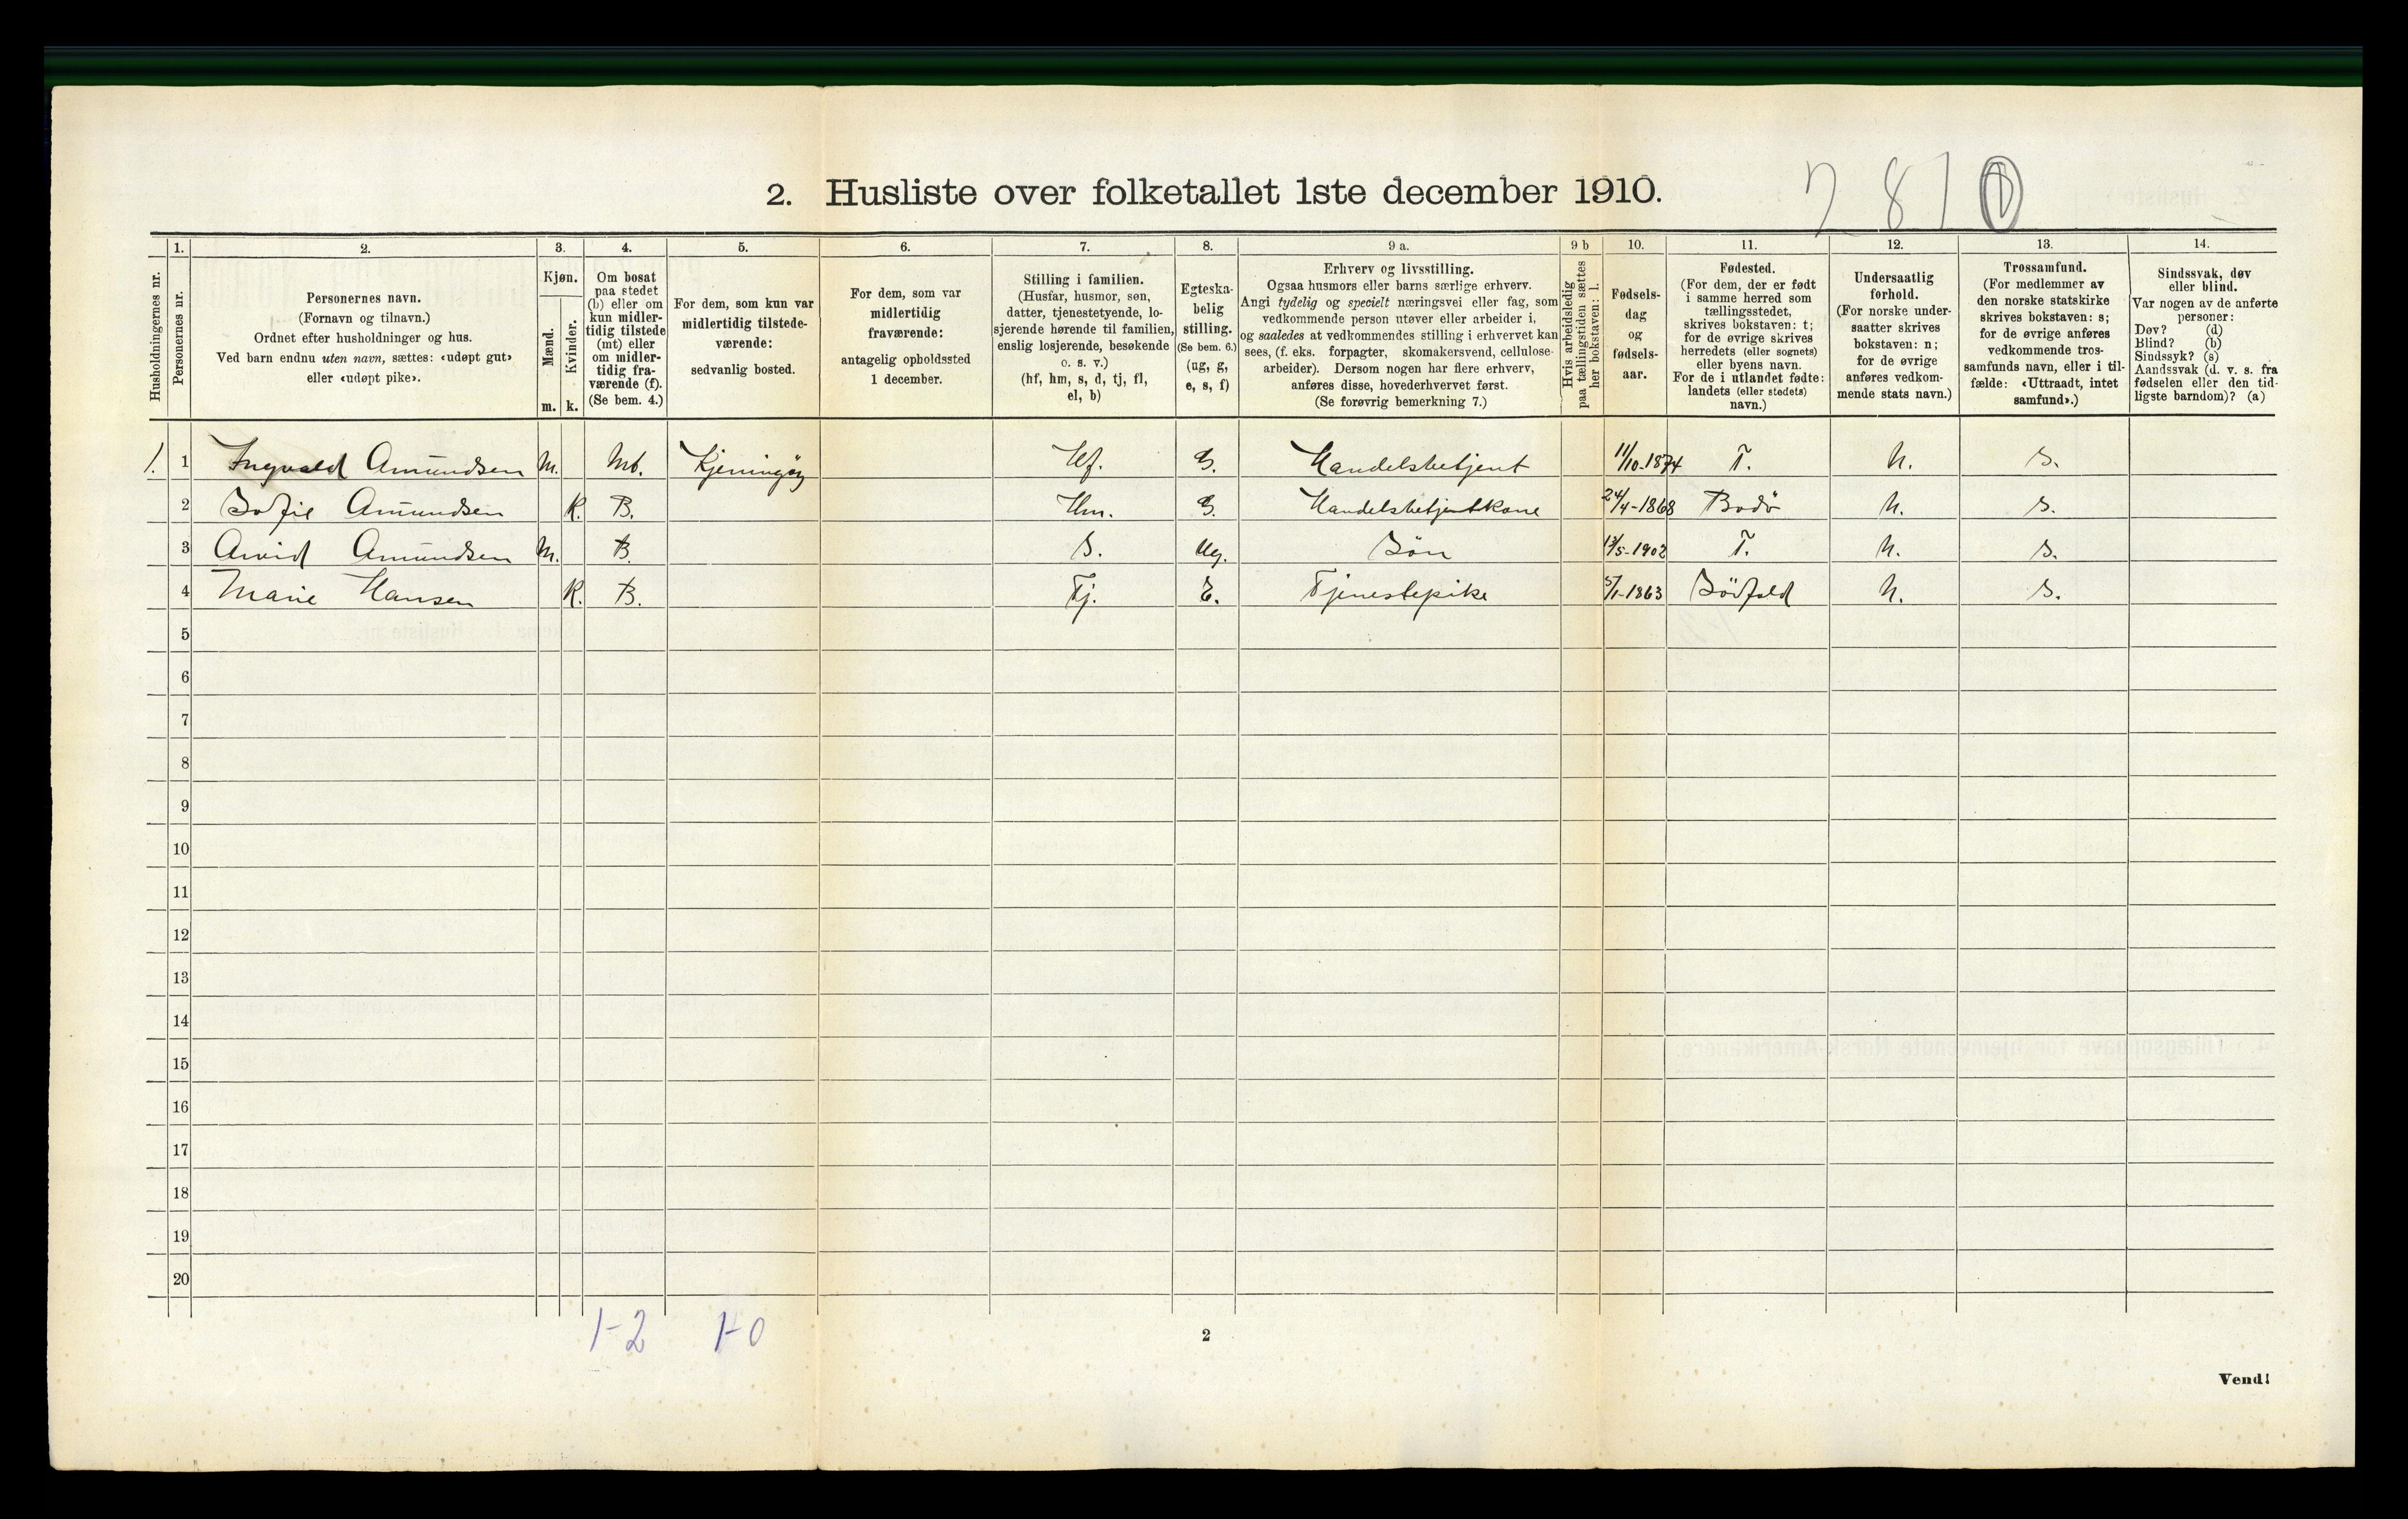 2. Husliste over folketallet 1ste december 1910.
2 8 1 ①
Husholdningernes nr.
1.
Personernes nr.
2.
Personernes navn.
(Fornavn og tilnavn.)
Ordnet efter husholdninger og hus.
Ved barn endnu uten navn, sættes: «udøpt gut»
eller «udøpt pike».
3.
Kjøn.
Mænd.
Kvinder.
m. k.
4.
Om bosat
paa stedet
(b) eller om
kun midler-
tidig tilstede
(mt) eller
om midler-
tidig fra-
værende (f).
(Se bem. 4.)
5.
For dem, som kun var
midlertidig tilstede-
værende:
sedvanlig bosted.
6.
For dem, som var
midlertidig
fraværende:
antagelig opholdssted
1 december.
7.
Stilling i familien.
(Husfar, husmor, søn,
datter, tjenestetyende, lo-
sjerende hørende til familien,
enslig losjerende, besøkende
o. s. v.)
(hf, hm, s, d, tj, fl,
el, b)
8.
Egteska-
belig
stilling.
(Se bem. 6.)
(ug, g,
e, s, f)
9 a.
Erhverv og livsstilling.
Ogsaa husmors eller barns særlige erhverv.
Angi tydelig og specielt næringsvei eller fag, som
vedkommende person utøver eller arbeider i,
og saaledes at vedkommendes stilling i erhvervet kan
sees, (f. eks. forpagter, skomakersvend, cellulose-
arbeider). Dersom nogen har flere erhverv,
anføres disse, hovederhvervet først.
(Se forøvrig bemerkning 7.)
9 b
Hvis arbeidsledig
paa tællingstiden sættes
her bokstaven: l.
10.
Fødsels-
dag
og
fødsels-
aar.
11.
Fødested.
(For dem, der er født
i samme herred som
tællingsstedet,
skrives bokstaven: t;
for de øvrige skrives
herredets (eller sognets)
eller byens navn.
For de i utlandet fødte:
landets (eller stedets)
navn.)
12.
Undersaatlig
forhold.
(For norske under-
saatter skrives
bokstaven: n;
for de øvrige
anføres vedkom-
mende stats navn.)
13.
Trossamfund.
(For medlemmer av
den norske statskirke
skrives bokstaven: s;
for de øvrige anføres
vedkommende tros-
samfunds navn, eller i til-
fælde: «Uttraadt, intet
samfund».)
14.
Sindssvak, døv
eller blind.
Var nogen av de anførte
personer:
Døv? (d)
Blind? (b)
Sindssyk? (s)
Aandssvak (d. v. s. fra
fødselen eller den tid-
ligste barndom)? (a)
1. 1 Ingvald Amundsen M. Mt. Kjerringøy Hf. G. Handelsbetjent 11/10-1874 T. N. S.
2 Sofie Amundsen K. B. Hm. G. Handelsbetjentkone 24/4-1868 Bodö N. S.
3 Arvid Amundsen M. B. S. Ug. Sön 13/5-1902 T. N. S.
4 Marie Hansen K. B. Tj. E. Tjenestepike 5/1-1863 Sörfold N. S.
5
6
7
8
9
10
11
12
13
14
15
16
17
18
19
20
1-2 1-0
2
Vend!